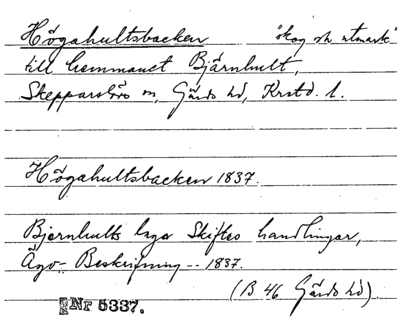 Högahultsbacken "skog och utmark"
till hemmanet Björnhult,
Skepparslövs sn, Gärds hd, Krstd. l.
Högahultsbacken 1837.
Björnhults Laga Skiftes handlingar,
Ägo- Beskrifning -- 1837.
(B 46 Gärds hd).
Nr 5337.